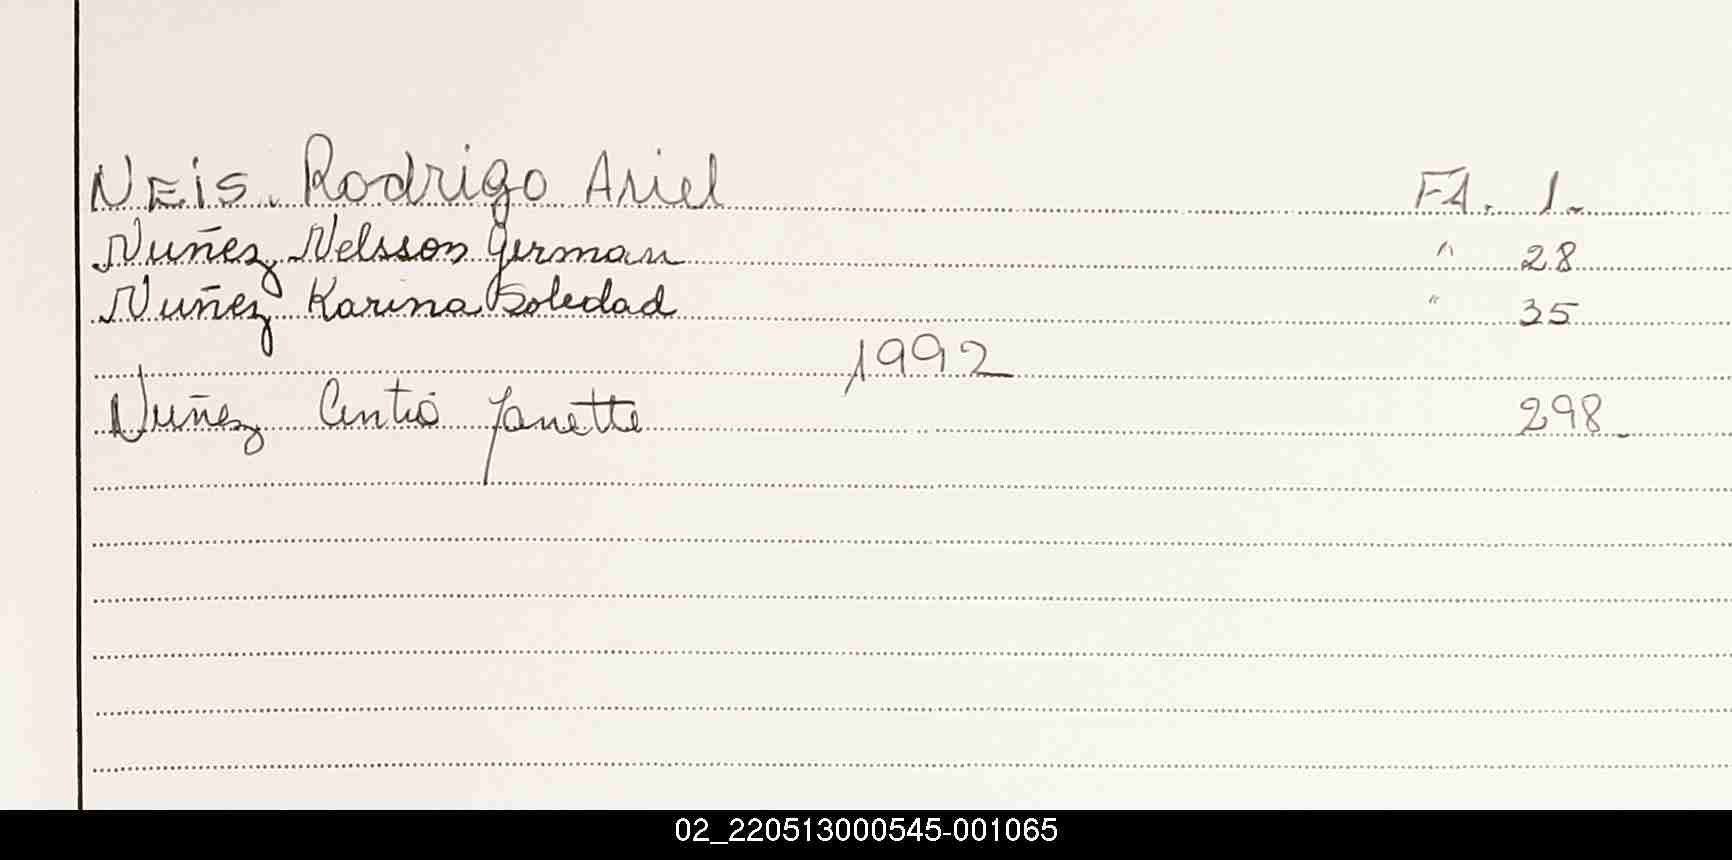 NEis. Rodrigo Ariel F1. 1.
Nuñez Nelsson German " 28
Nuñez Karina Soledad " 35
1992
Nuñez Cintia Janette 298.
02_220513000545-001065